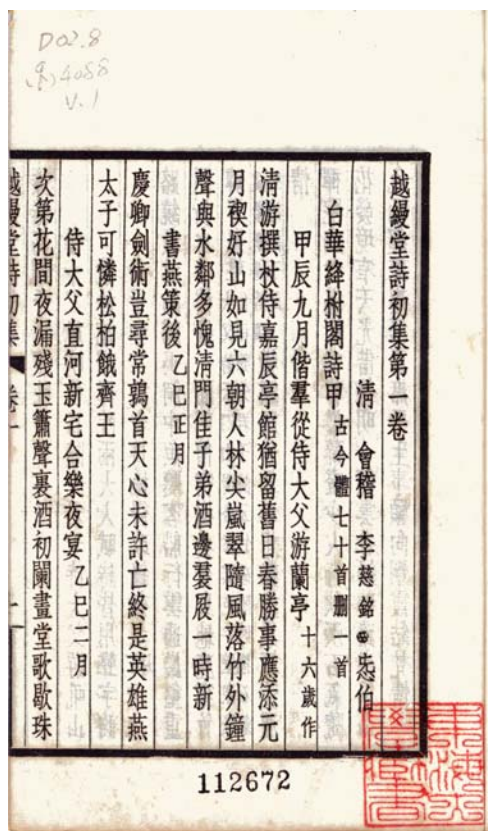 D02.8
4088
V.1
越縵堂詩初集第一卷
清 會稽 李慈銘 㤅伯
白華絳柎閣詩甲 古今體七十首刪一首
甲辰九月偕羣從侍大父游蘭亭 十六歲作
清游撰杖侍嘉辰亭館猶留舊日春勝事應添元
月禊好山如見六朝人林尖嵐翠隨風落竹外鐘
聲與水鄰多愧清門佳子弟酒邊裙屐一時新
書燕策後 乙巳正月
慶卿劍術豈尋常鶉首天心未許亡終是英雄燕
太子可憐松柏餓齊王
侍大父直河新宅合樂夜宴 乙巳二月
次第花間夜漏殘玉簫聲裏酒初闌畫堂歌歇珠
越縵堂詩初集 卷一 一
112672